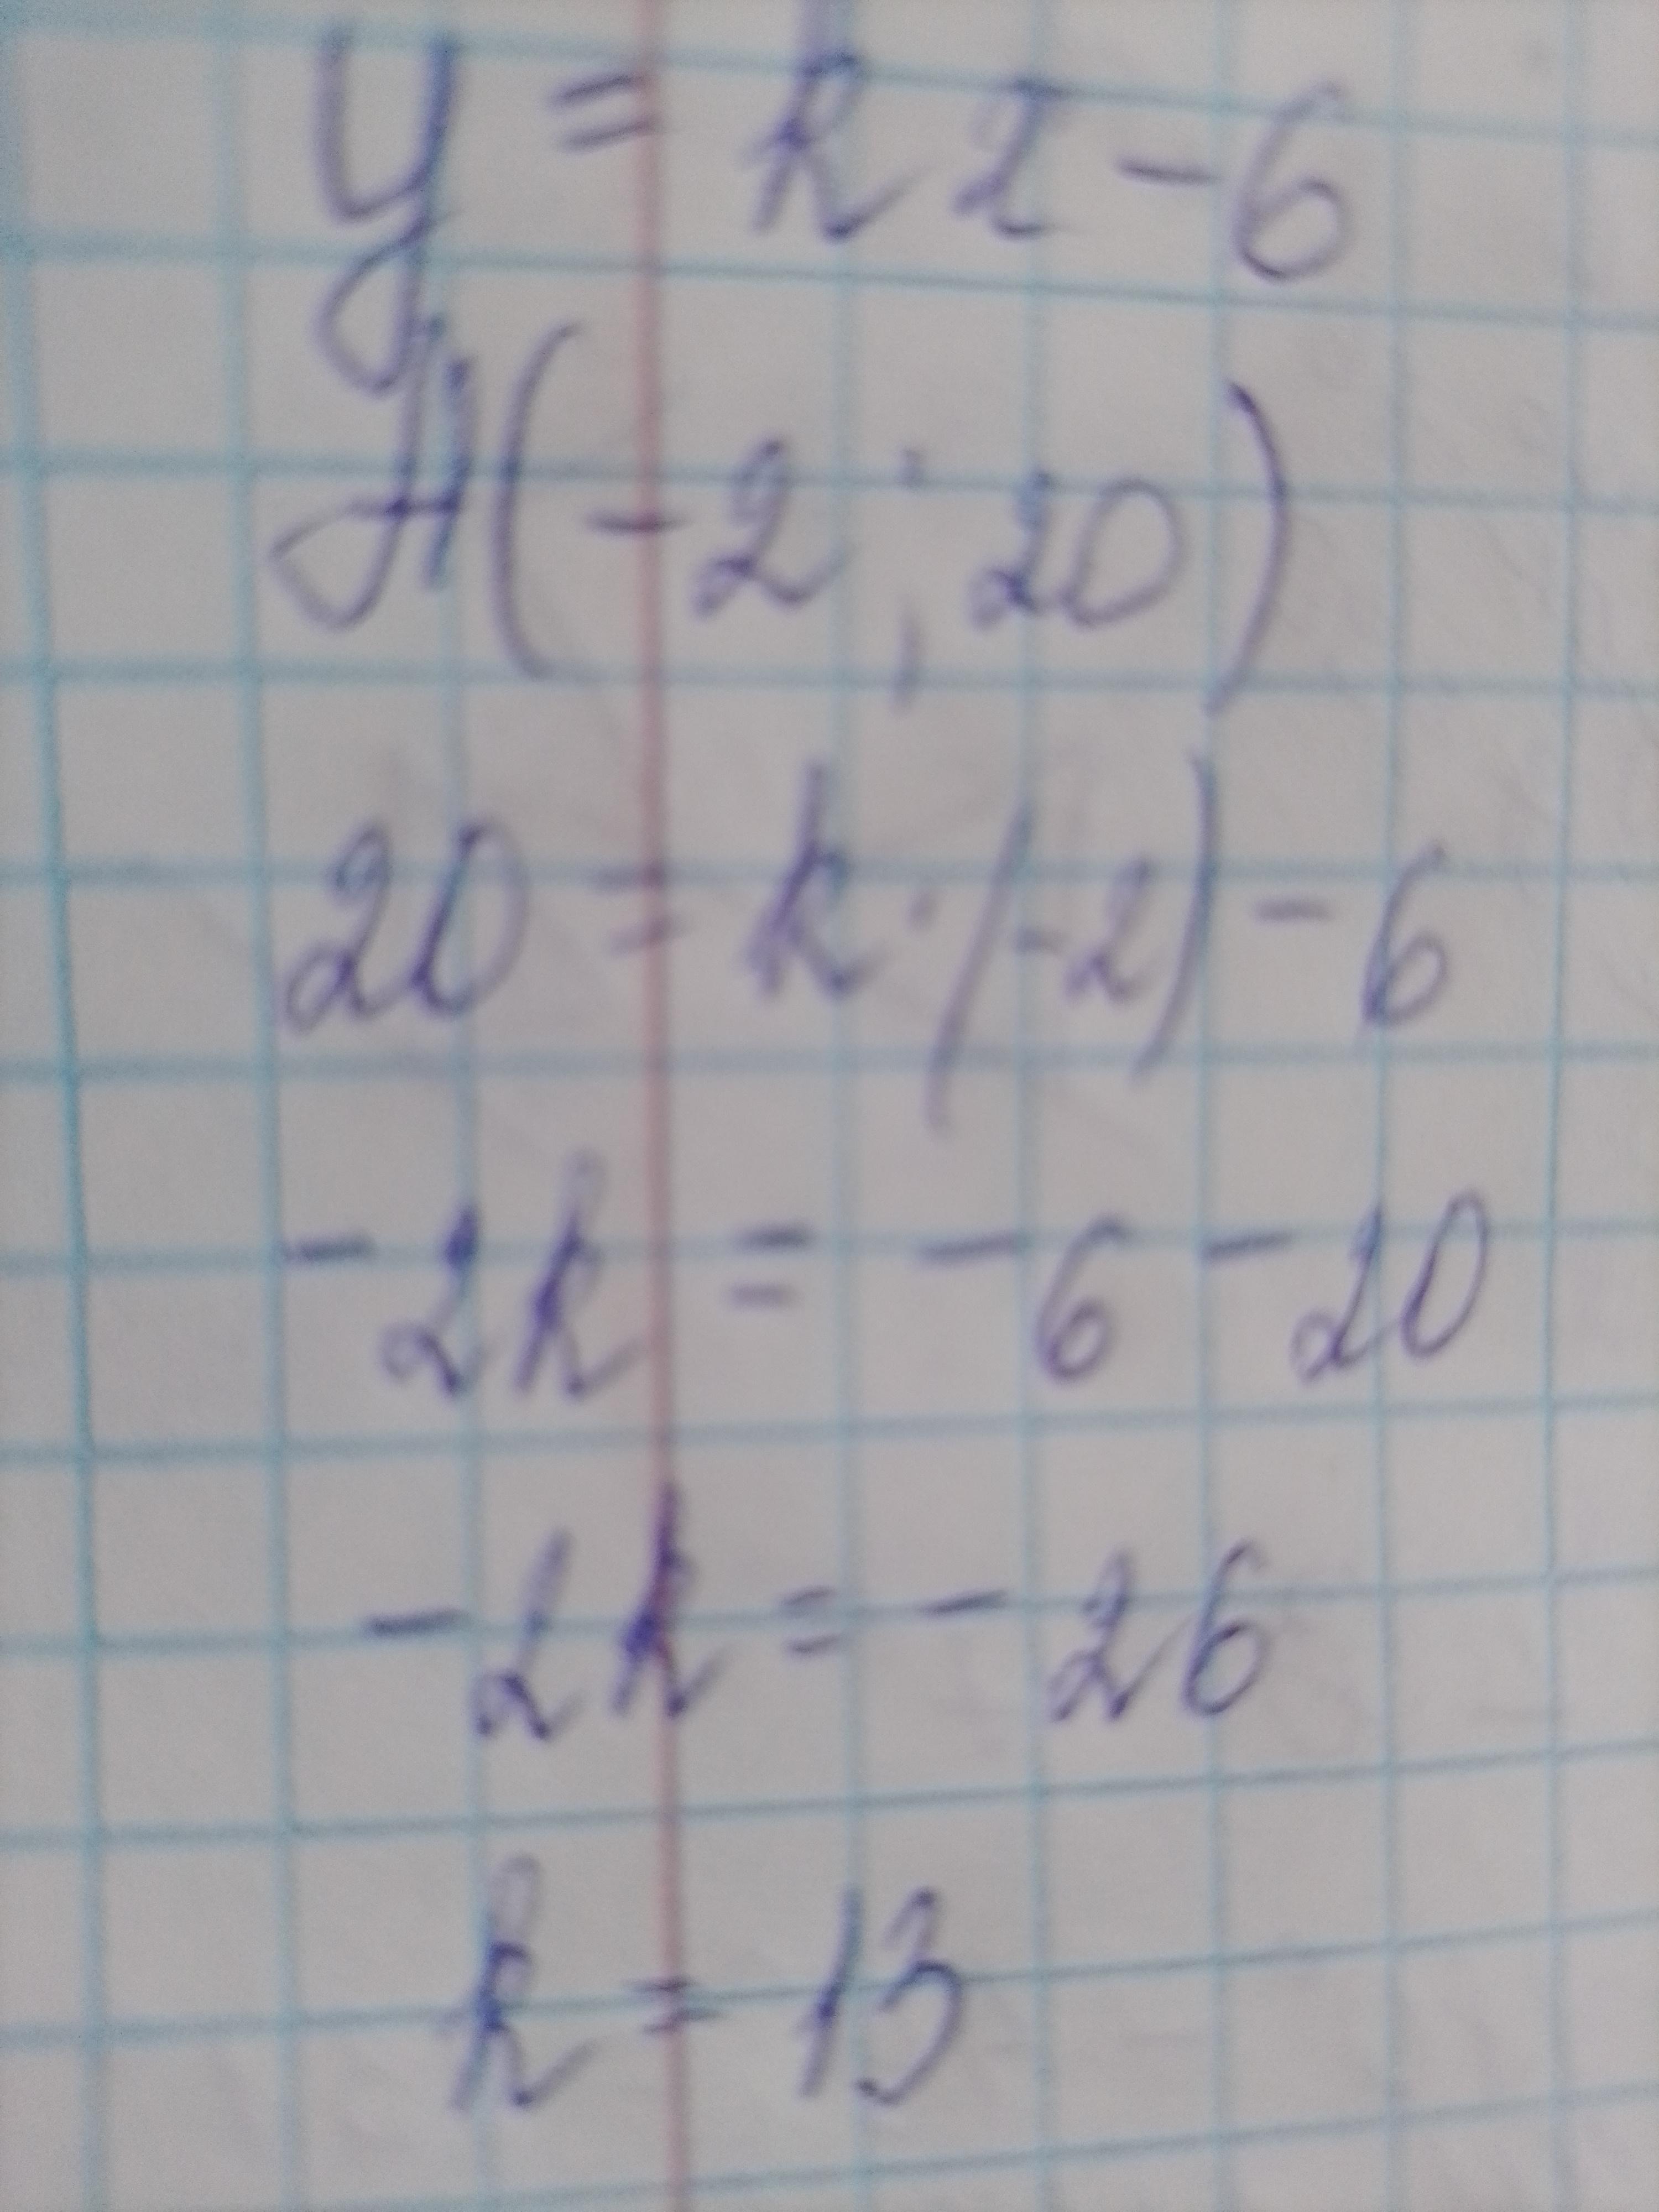 y = kx - 6
A(-2; 20)
20 = k·(-2) - 6
-2k = -6 -20
-2k = -26
k = 13